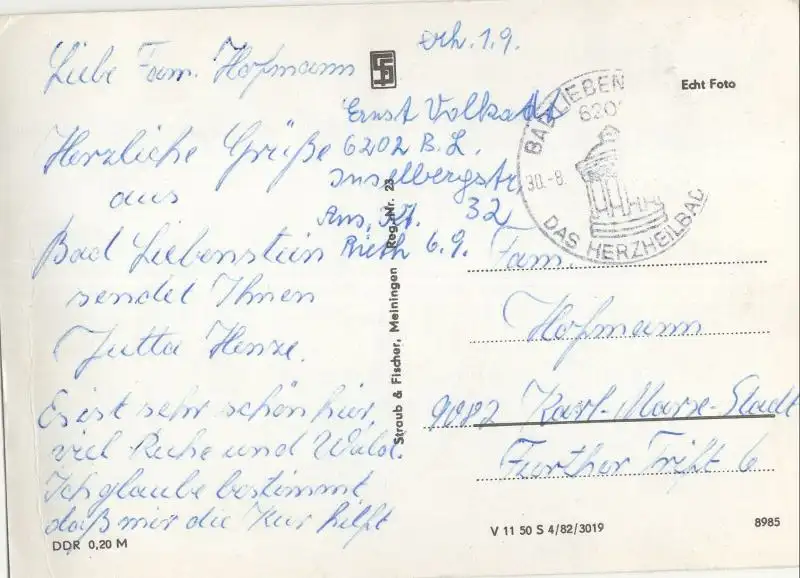 erh. 1.9.
Liebe Fam. Hofmann
Herzliche Grüße
aus
Bad Liebenstein
sendet Ihnen
Jutta Henze.
Es ist sehr schön hier,
viel Ruhe und Wald.
Ich glaube bestimmt
daß mir die Kur hilft
DDR 0,20 M
Ernst Volkstadt
6202 B.L.
Inselbergstr.
32
6.9.
Straub & Fischer, Meiningen Reg.-Nr. 23
Echt Foto
BAD LIEBEN
620
30.-8.
DAS HERZHEILBAD
Fam.
Hofmann
9082 Karl-Marx-Stadt
Further Trift 6
V 11 50 S 4/82/3019
8985